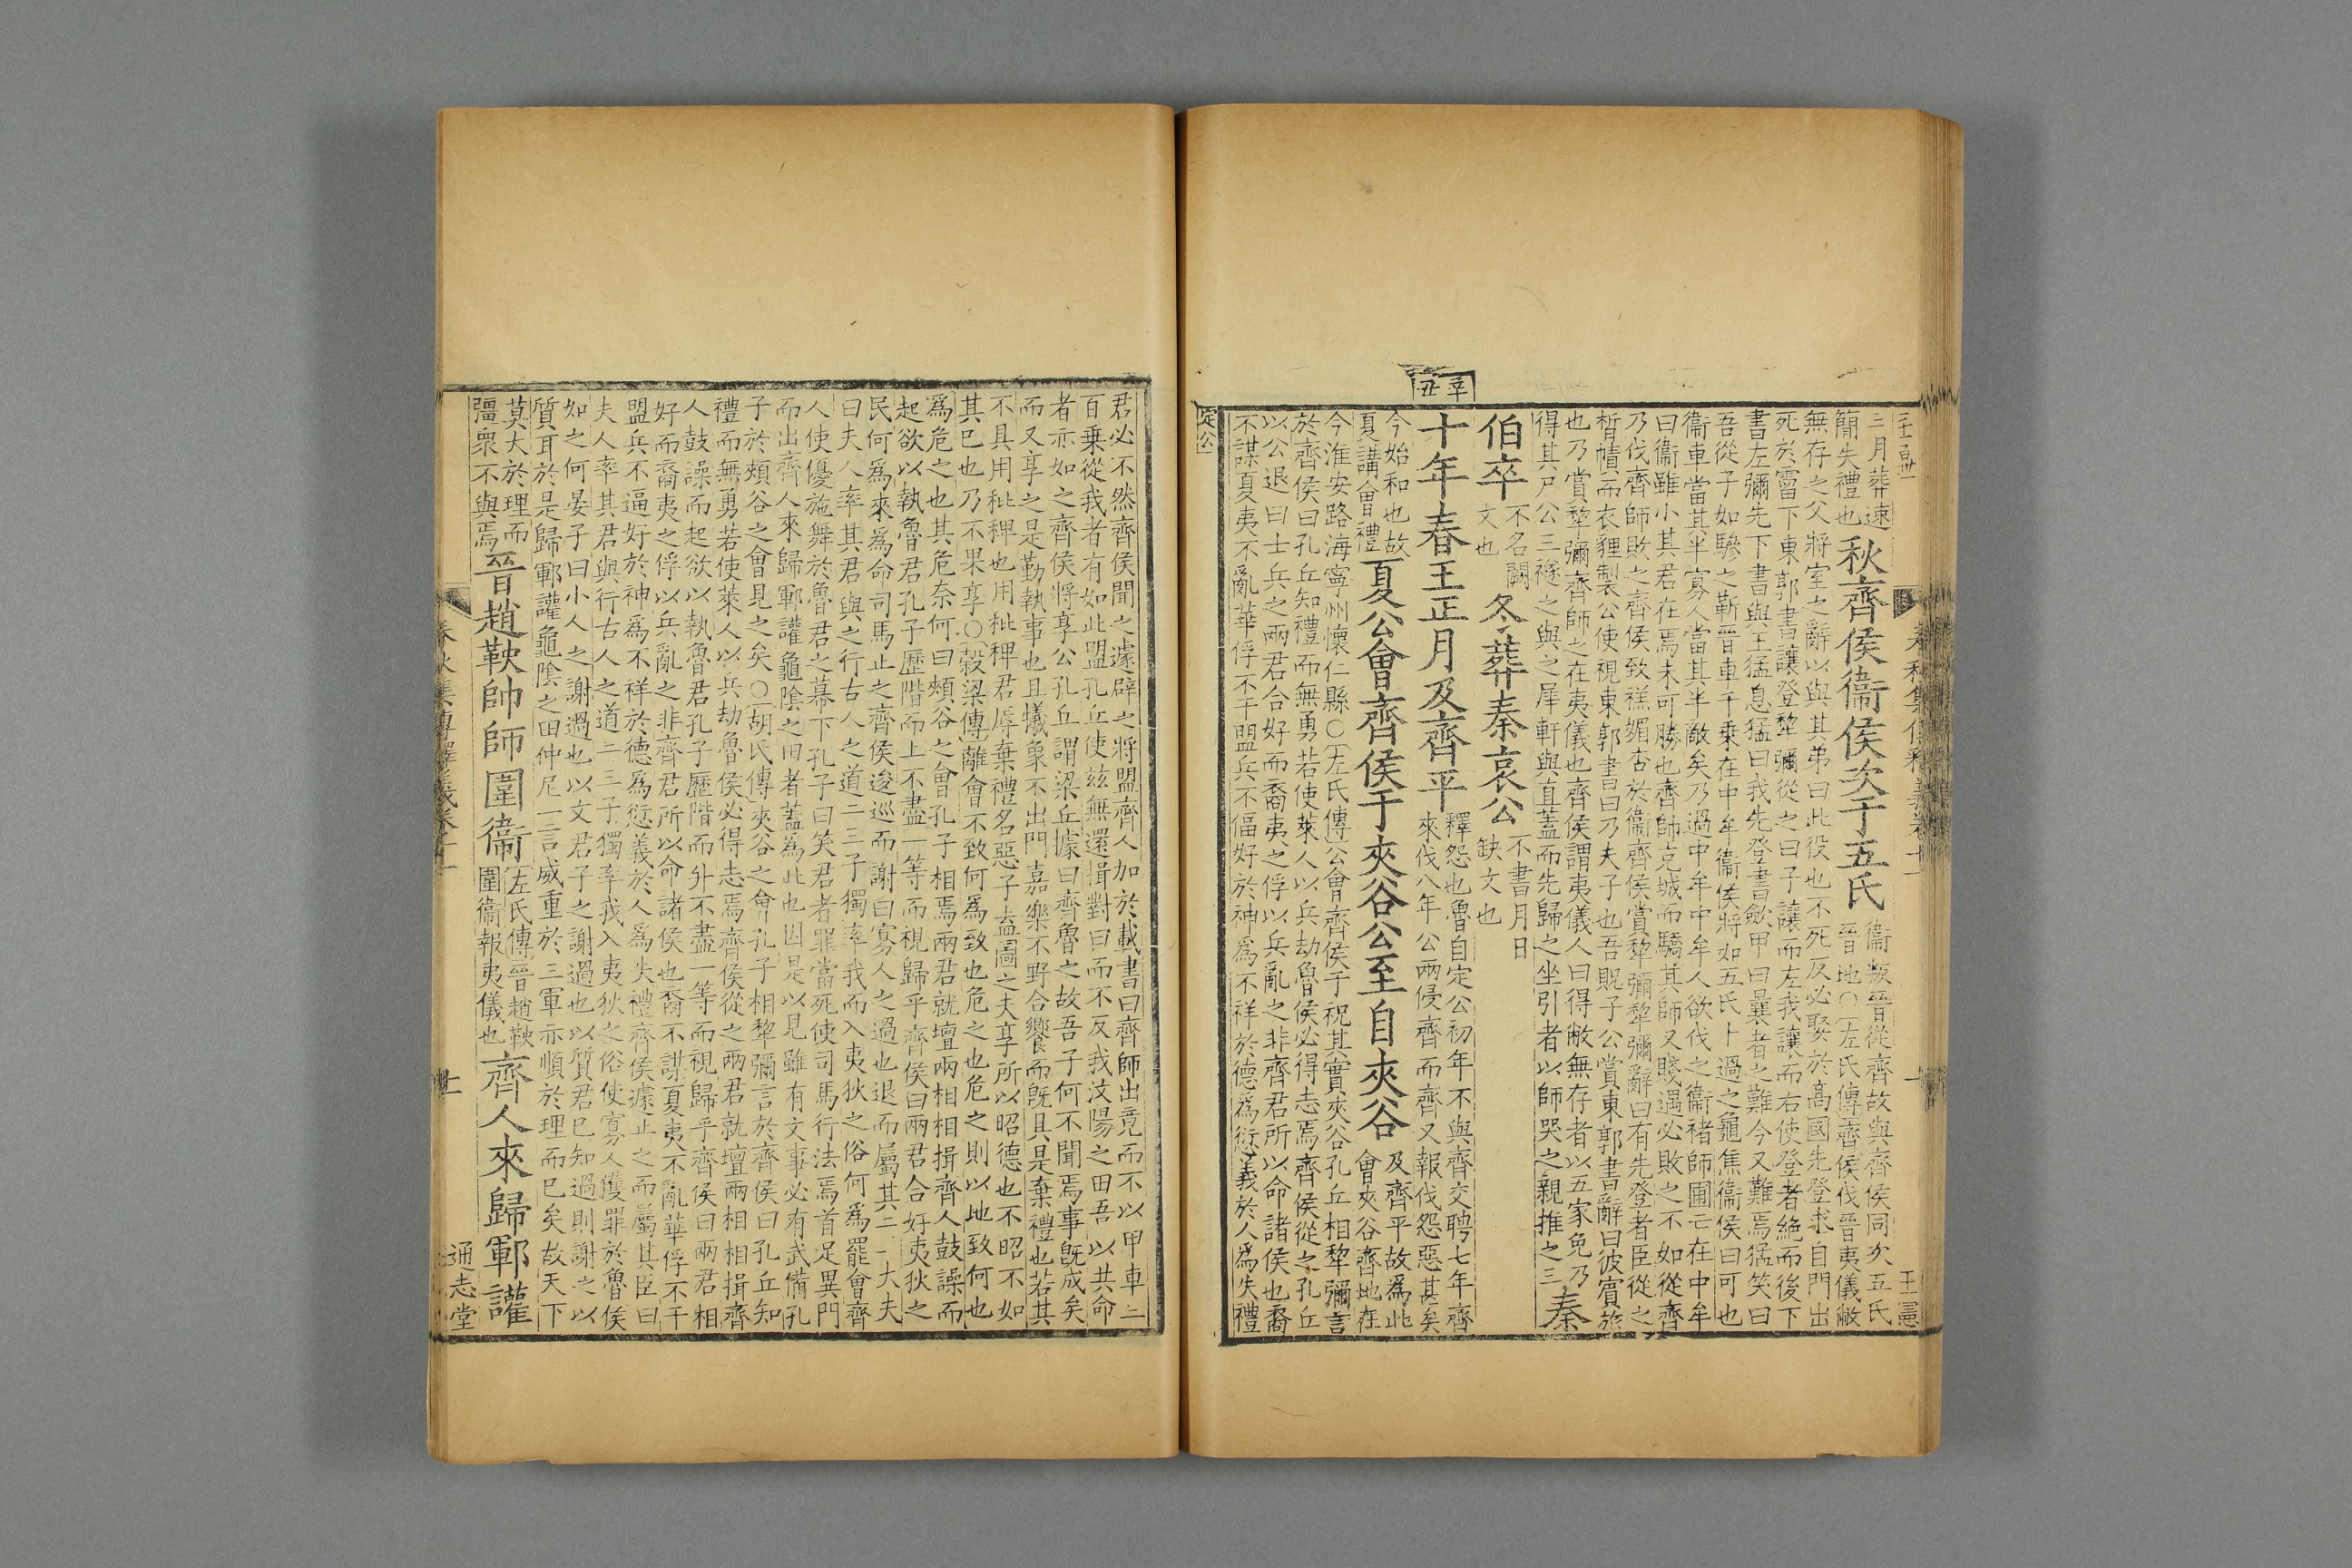 三月葬速
簡失禮也
秋齊侯衞侯次于五氏
衞叛晉從齊故與齊侯同次五氏
晉地○左氏傳齊侯伐晉夷儀敝
無存之父將室之辭以與其弟曰此役也不死反必娶於高國先登求自門出
死於霤下東郭書讓登犂彌從之曰子讓而左我讓而右使登者絶而後下
書左彌先下書與王猛息猛曰我先登書斂甲曰曩者之難今又難焉猛笑曰
吾從子如驂之靳晉車千乗在中牟衞侯將如五氏卜過之龜焦衞侯曰可也
衞車當其半寡人當其半敵矣乃過中牟中牟人欲伐之衞褚師圃亡在中牟
曰衞雖小其君在焉未可勝也齊師克城而驕其師又賤遇必敗之不如從齊
乃伐齊師敗之齊侯致禚媚杏於衞齊侯賞犂彌犂彌辭曰有先登者臣從之
晳幘而衣貍製公使視東郭書曰乃夫子也吾貺子公賞東郭書辭曰彼賓旅
也乃賞犂彌齊師之在夷儀也齊侯謂夷儀人曰得敝無存者以五家免乃
得其尸公三襚之與之犀軒與直蓋而先歸之坐引者以師哭之親推之三
秦
伯卒
不名闕
文也
冬葬秦哀公
不書月日
缺文也
辛丑
十年春王正月及齊平
釋怨也魯自定公初年不與齊交聘七年齊
來伐八年公兩侵齊而齊又報伐怨惡甚矣
今始和也故
夏講會禮
夏公會齊侯于夾谷公至自夾谷
及齊平故爲此
會夾谷齊地在
今淮安路海寧州懷仁縣○左氏傳公會齊侯于祝其實夾谷孔丘相犂彌言
於齊侯曰孔丘知禮而無勇若使萊人以兵劫魯侯必得志焉齊侯從之孔丘
以公退曰士兵之兩君合好而裔夷之俘以兵亂之非齊君所以命諸侯也裔
不謀夏夷不亂華俘不干盟兵不偪好於神爲不祥於德爲愆義於人爲失禮
定公
王憲
君必不然齊侯聞之遽辟之將盟齊人加於載書曰齊師出竟而不以甲車三
百乗從我者有如此盟孔丘使兹無還揖對曰而不反我汶陽之田吾以共命
者亦如之齊侯將享公孔丘謂梁丘據曰齊魯之故吾子何不聞焉事旣成矣
而又享之是勤執事也且犧象不出門嘉樂不野合饗而旣具是棄禮也若其
不具用秕稗也用秕稗君辱棄禮名惡子盍圖之夫享所以昭德也不昭不如
其已也乃不果享○穀梁傳離會不致何爲致也危之也危之則以地致何也
爲危之也其危奈何曰頰谷之會孔子相焉兩君就壇兩相相揖齊人鼓譟而
起欲以執魯君孔子歷階而上不盡一等而視歸乎齊侯曰兩君合好夷狄之
民何爲來爲命司馬止之齊侯逡巡而謝曰寡人之過也退而屬其二一大夫
曰夫人率其君與之行古人之道二三子獨率我而入夷狄之俗何爲罷會齊
人使優施舞於魯君之幕下孔子曰笑君者罪當死使司馬行法焉首足異門
而出齊人來歸鄆讙龜陰之田者蓋爲此也因是以見雖有文事必有武備孔
子於頰谷之會見之矣○胡氏傳夾谷之會孔子相犂彌言於齊侯曰孔丘知
禮而無勇若使萊人以兵劫魯侯必得志焉齊侯從之兩君就壇兩相相揖齊
人鼓譟而起欲以執魯君孔子歷階而升不盡一等而視歸乎齊侯曰兩君相
好而裔夷之俘以兵亂之非齊君所以命諸侯也裔不謀夏夷不亂華俘不干
盟兵不逼好於神爲不祥於德爲愆義於人爲失禮齊侯遽止之而屬其臣曰
夫人率其君與行古人之道二三子獨率我入夷狄之俗使寡人獲罪於魯侯
如之何晏子曰小人之謝過也以文君子之謝過也以質君已知過則謝之以
質耳於是歸鄆讙龜陰之田仲尼一言威重於三軍亦順於理而已矣故天下
莫大於理而
彊衆不與焉
晉趙鞅帥師圍衞
左氏傳晉趙鞅
圍衞報夷儀也
齊人來歸鄆讙
春秋集傳釋義卷十一
通志堂